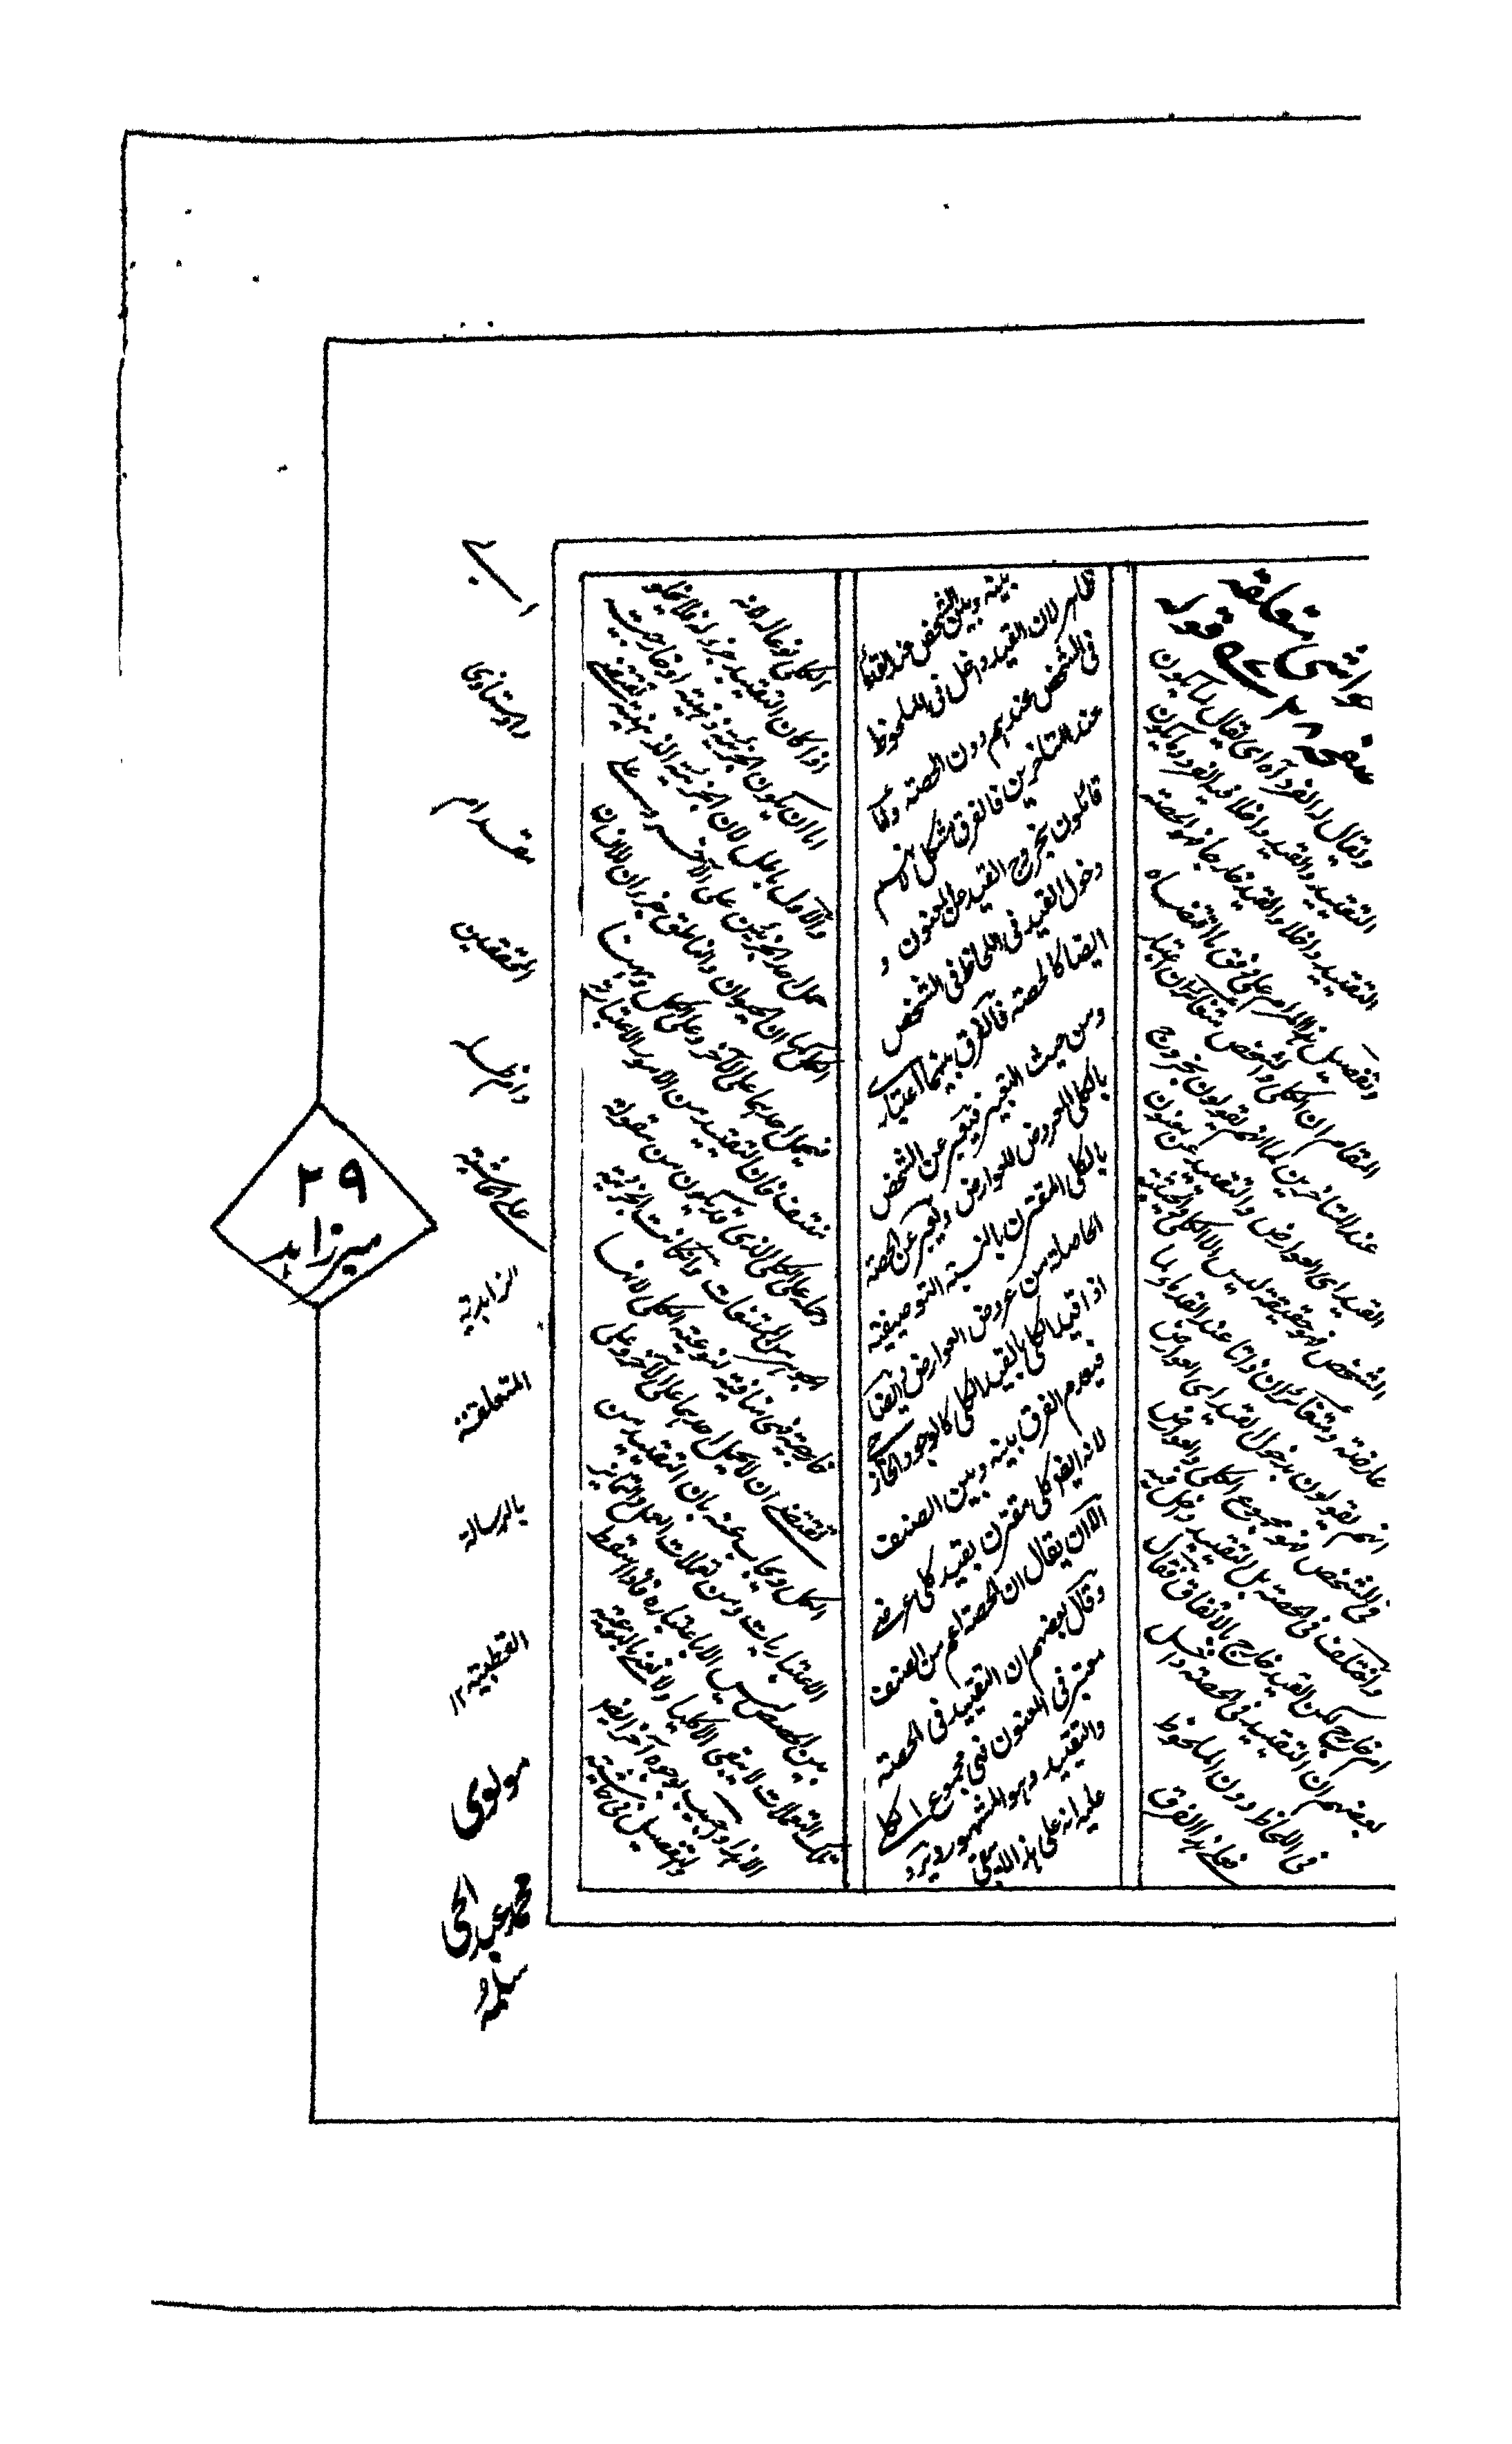 حواشی متعلقه
صفحه ٢٨ قوله
ويقال له الفرد آه اى يقال لما يكون
التقييد والقيد داخلا فيه الفرد وما يكون
التقييد داخلا والقيد خارجا فهو الحصته
وتفصيل هذا المرام على وفق ما اقتضاه
المقام ان الكلى والشخص متغائران اعتبارا
عند المتأخرين لما انهم يقولون بخروج
القيد اى العوارض والتقييد عن معنون
الشخص فهو حقيقة ليس الا الكلى والحيثية
عارضته ومتغائران ذاتا عند القدماء لما
انهم يقولون بدخول القيد اى العوارض
فى الشخص فهو مجموع الكلى والعوارض
واختلف فى الحصته بل التقييد داخل فيه
ام خارج لكن القيد خارج بالاتفاق فقال
بعضهم ان التقييد فى الحصته داخل
فى اللحاظ دون الملحوظ
فعلى هذا الفرق
بينه وبين الشخص عند القدماء
ظاهر لان القيد داخل فى الملحوظ
فى الشخص عندهم دون الحصته واما
عند المتأخرين فالفرق مشكل لانهم
قائلون بخروج القيد عن المعنون و
دخول القيد فى اللحاظ فى الشخص
ايضا كالحصته فالفرق بينهما اعتبارى
ومن حيث التعبير فيعبر عن الشخص
بالكلى المعروض للعوارض ويعبر عن الحصته
بالكلى المقترن بالنسبته التوصيفية
الحاصلة من عروض العوارض وايضا
اذا قيد الكلى بالقيد الكلى كالوجود الخارجى
فيعدم الفرق بينه وبين الصنف
لانه ايضا كلى مقترن بقيد كلى عرضى
الا ان يقال ان الحصته اعم من الصنف
وقال بعضهم ان التقييد فى الحصته
معتبر فى المعنون فهى مجموع الكلى
والتقييد وهو المشهور ويرد
عليه انه على هذا لا يبقى
الكلى نوعا له لانه
اذا كان التقييد جزء له فلا يخلو
اما ان يكون الجزئية ذهنية او خارجية
والاول باطل لان الجزئية الذهنية تقتضى
حمل احد الجزئين على الآخر وعلى
الكل كما ان الحيوان والناطق جزءان للانسان
فيحمل احدهما على الآخر وعلى الكل وههنا
منتف فان التقييد من الامور الاعتبارية
وحمله على الكلى الذى قد يكون من مقولة
الجوهر من الممتنعات وان كانت الجزئية
خارجية فهى منافية لنوعية الكلى لانها
تقتضى ان لا يحمل احدهما على الآخر وعلى
الكل ويجاب عنه بان التقييد من
الاعتباريات ومن تعملات العقل والتمائز
بين الحصص ليس الا باعتباره فاذا اسقط
تلك التعملات لا يبقى الا كليا ولا نعنى بالنوعية
الا هذا واجيب بوجوه آخر ايضا
والتفصيل فى حاشية
ابى
واوستاذى
مقدام
المحققين
دام ظله
على الحاشية
الزاهدية
المتعلقة
بالرسالة
القطبية ١٢
مولوى
محمد عبد الحى
سلمه
٢٩
ميرزاهد